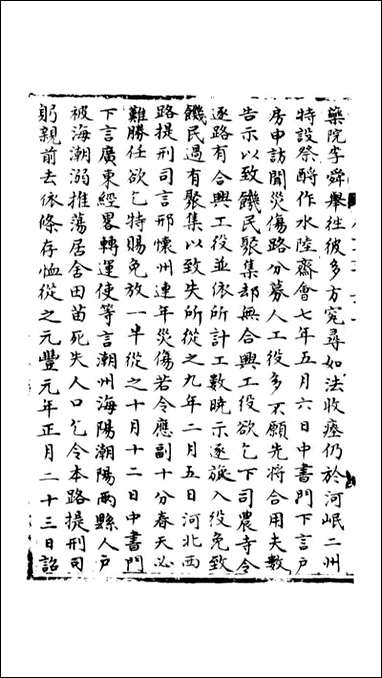 藥院李舜舉往彼多方寃尋如法收瘞仍於河岷二州
特設祭酹作水陸齋會七年五月六日中書門下言戶
房申訪聞災傷路分募人工役多不願先將合用夫數
告示以致饑民聚集却無合興工役欲乞下司農寺令
逐路有合興工役並依所計工數曉示逐旋入役免致
饑民過有聚集以致失所從之九年二月五日河北西
路提刑司言邢懷州連年災傷若令應副十分春夫必
難勝任欲乞特賜免放一半從之十月十二日中書門
下言廣東經畧轉運使等言潮州海陽潮陽兩縣人戶
被海潮溺推蕩居舍田苗死失人口乞令本路提刑司
躬親前去依條存恤從之元豐元年正月二十三日詔